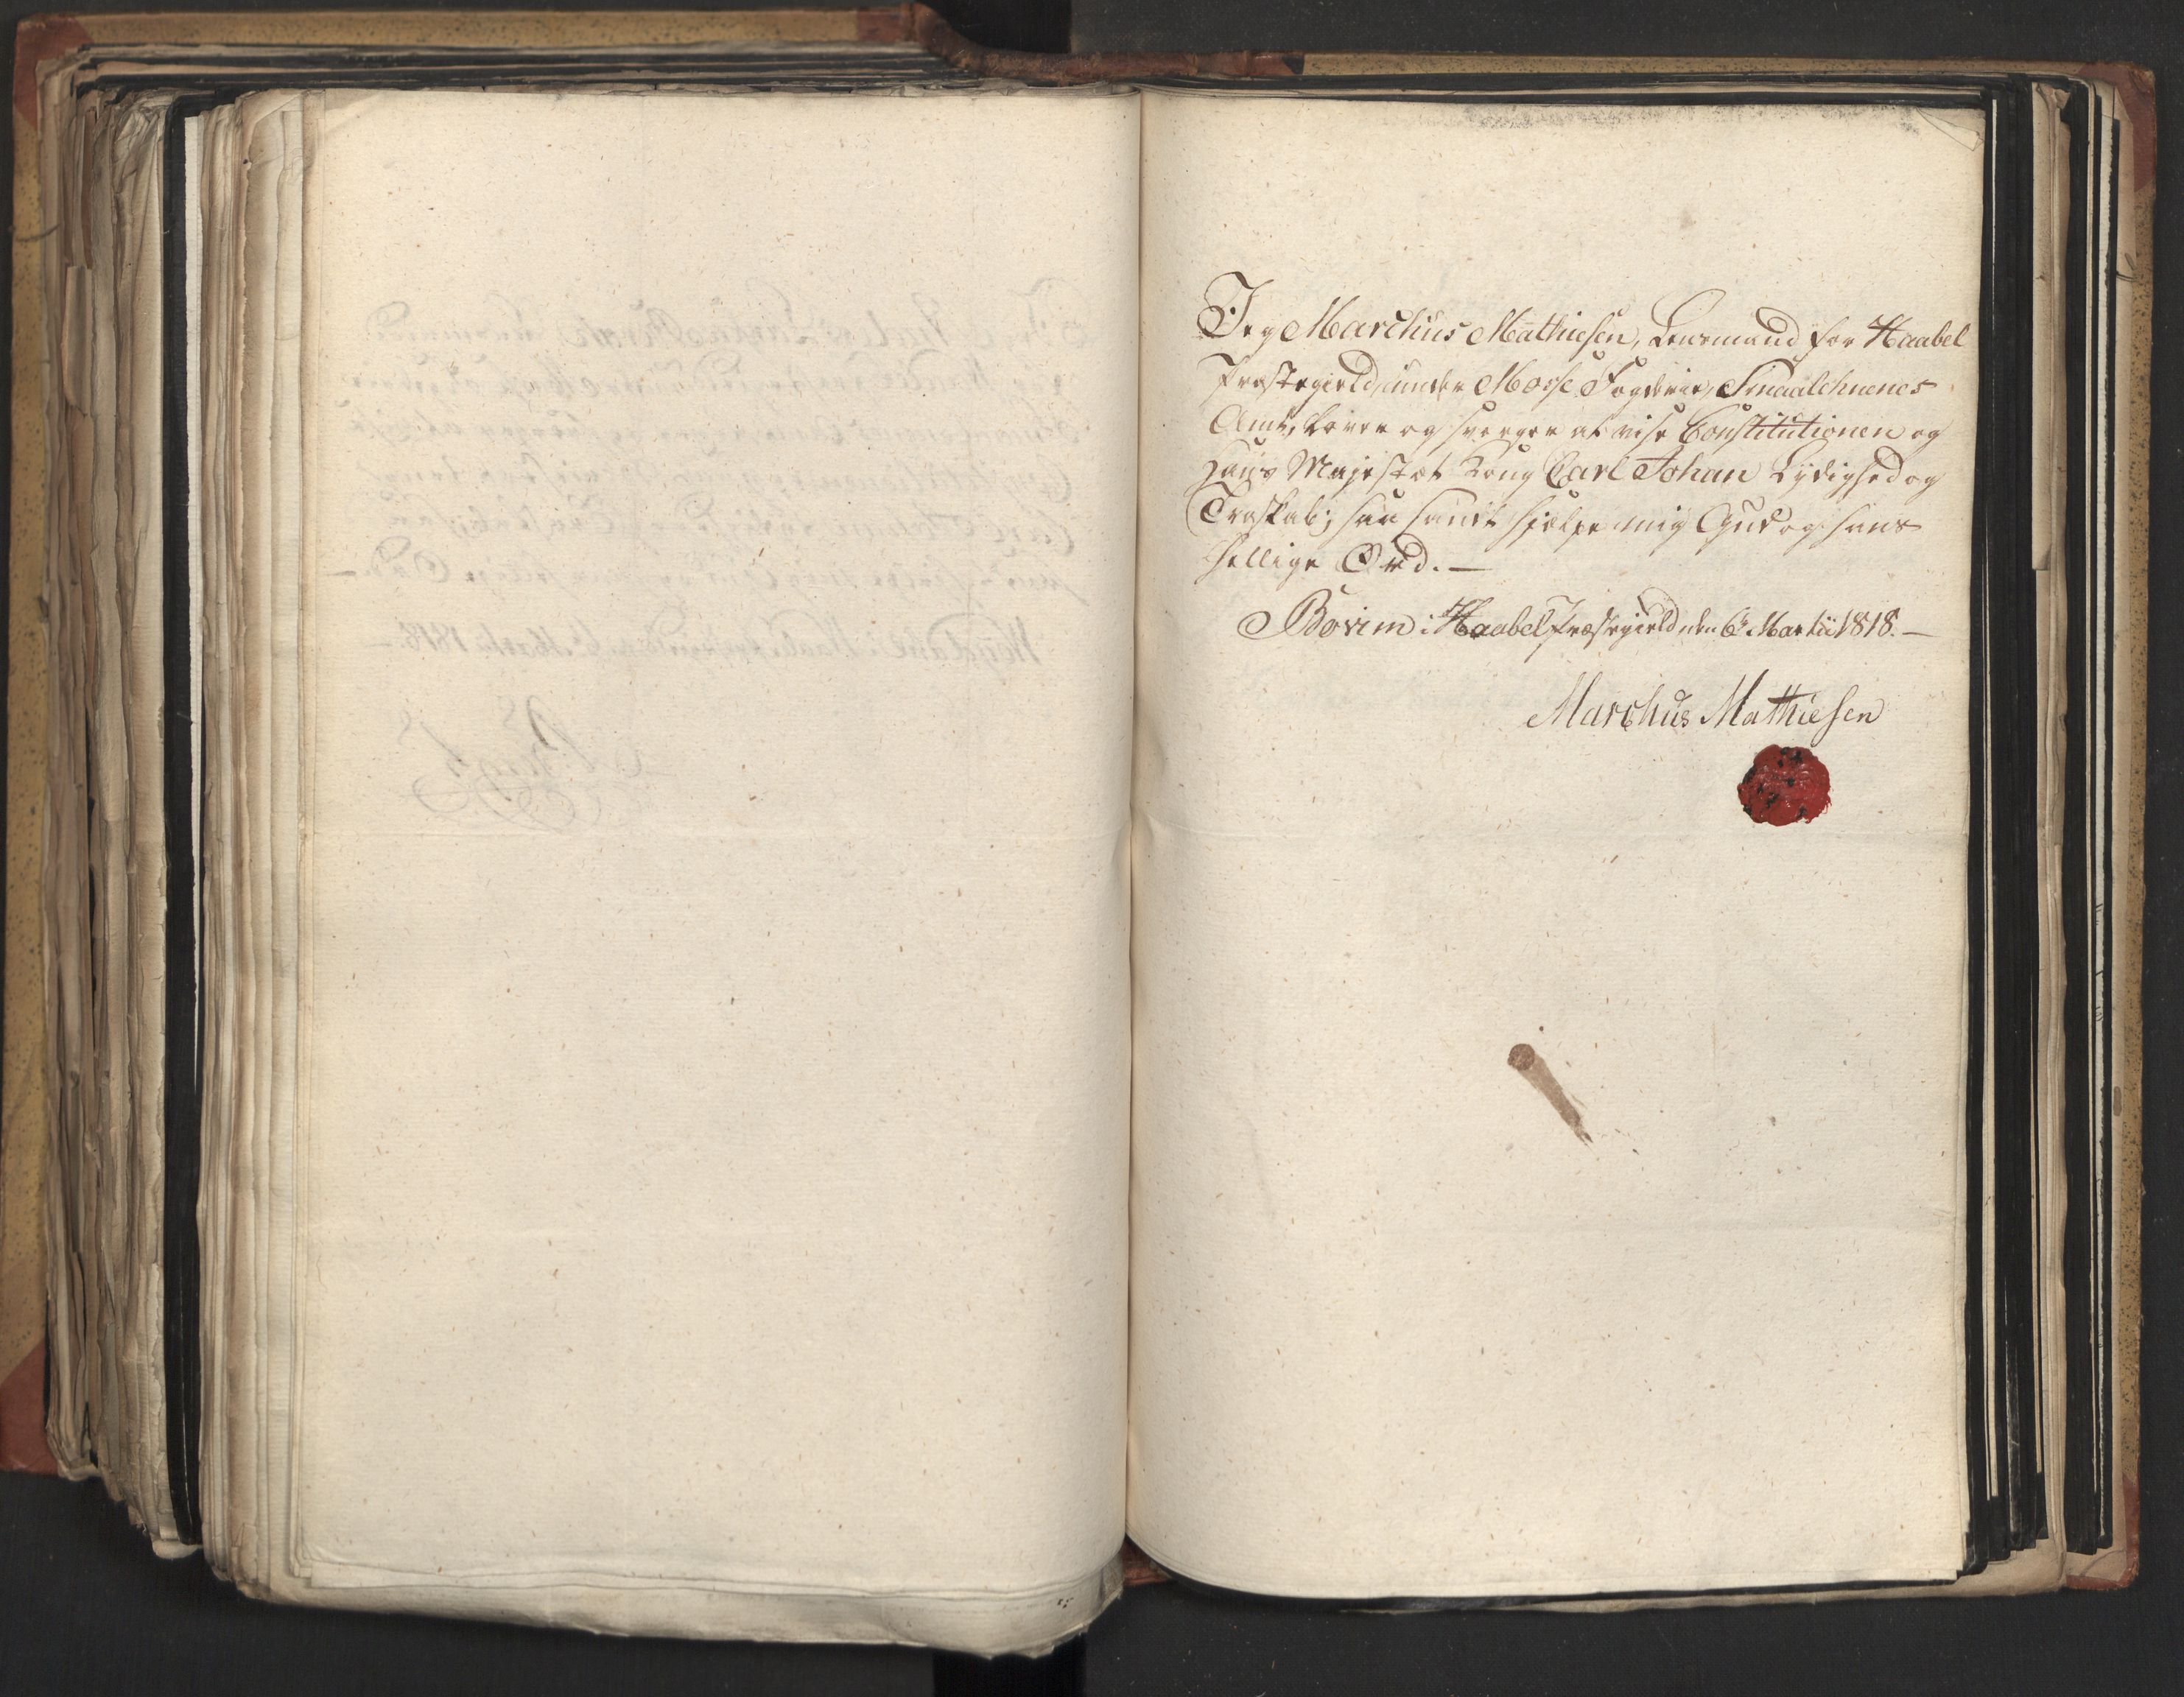 Jeg Marchus Mathiesen, Lensmand for Haabel
Præstegield, under Mosse Fogderie, Smaalehnenes
Amt, lover og sværger at vise Constitutionen og
Hans Majestæt Kong Carl Johan Lydighed og
Troskab; saa sandt hjelpe mig Gud og hans
hellige Ord. —
Bovim i Haabel Præstegield den 6te Martii 1818. —
Marchus Mathiesen